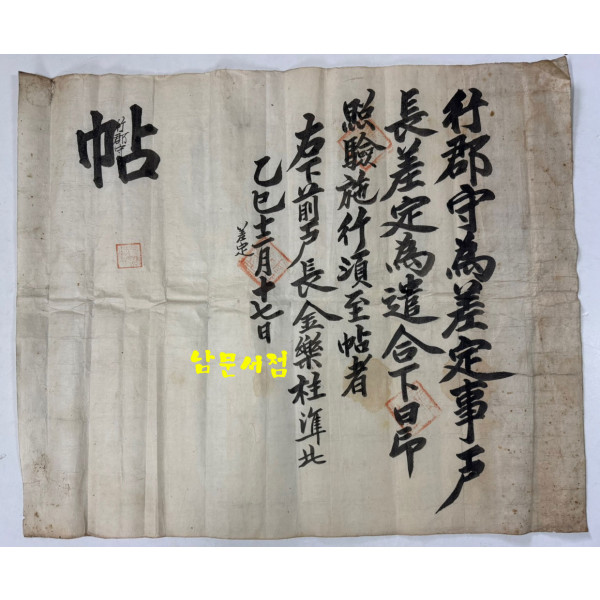 行郡守為差定事戶
長差定為遣合下日印
照驗施行須至帖者
右下前戶長金樂桂準此
乙巳十二月十七日
差定
帖
行郡守
남문서점